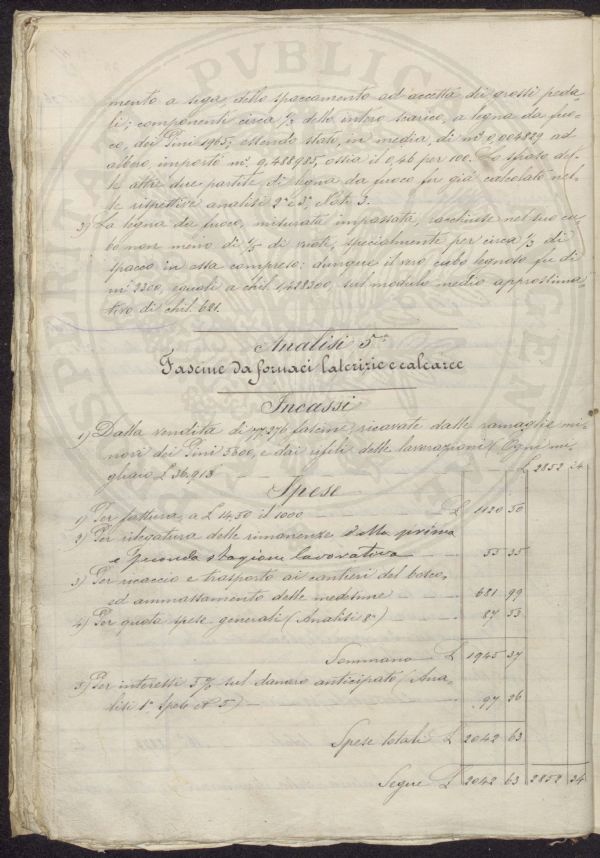 mento a sega, dello spaccamento ad accetta dei grossi peda-
li; componenti circa ⅓ dello intero scarico, a legna da fuo-
co, dei Pini 1965; essendo stato, in media, di m.c 0,004829 ad
albero, importò m.c 9,488985, ossia il 0,46 per 100. Lo sfrato del-
le altre due partite di legna da fuoco fu già calcolato nel-
le rispettive analisi 2.a e 3.a, Note 3.
3) La legna da fuoco, misurata impassata, racchiuse nel suo cu-
bo non meno di ⅓ di vuoti, specialmente per circa ⅓ di
spacco in essa compreso: dunque il vero cubo legnoso fu di
m.c 2300, eguali a chil. 1,428300, sul modulo medio approssima-
tivo di chil. 621.
Analisi 5.a
Fascine da fornaci laterizie e calcaree
Incassi
1) Dalla vendita di 77,276 fascine, ricavate dalle ramaglie mi-
nori dei Pini 5800, e dai rifili delle lavorazioni. Ogni mi-
gliaio £ 36.913 £ 2852 24
Spese
1) Per fattura, a £ 14,50 il 1000 £ 1120 50
2) Per rilegatura delle rimanenze della prima
e seconda stagione lavorativa 55 35
3) Per ricaccio e trasporto ai cantieri del bosco,
ed ammassamento delle medesime 681 99
4) Per quota spese generali (Analisi 8.a) 87 53
Sommano £ 1945 37
5) Per interessi 5 % sul danaro anticipato, (Ana-
lisi 1.a Spese N.o 5) 97 26
Spese totali £ 2042 63
Segue £ 2042 63 2852 24